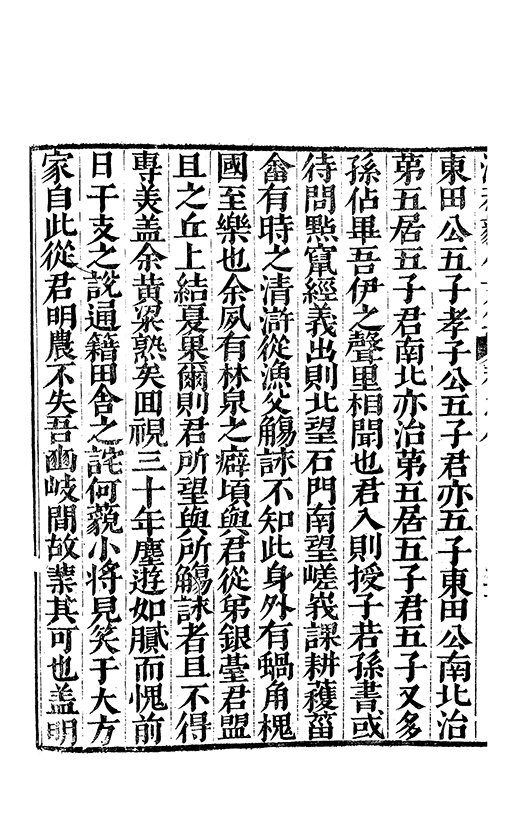 東田公五子孝子公五子君亦五子東田公南北治
第五居五子君南北亦治第五居五子君五子又多
孫佔畢吾伊之聲里相聞也君入則授子若孫書或
待問㸃竄經義出則北望石門南望嵯峩課耕穫菑
畬有時之清滸從漁父觴詠不知此身外有蝸角槐
國至樂也余夙有林泉之癖頃與君從弟銀臺君盟
且之丘上結夏果爾則君所望與所觴詠者且不得
專美盖余黄粱熟矣回視三十年塵遊如膩而愧前
日干支之說通籍田舍之詫何藐小將見笑于大方
家自此從君明農不失吾豳岐間故業其可也盖明